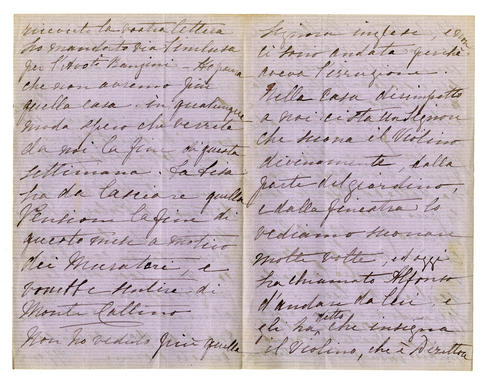 ricevuto la vostra lettera
ho mandato via l'inclusa
per l'Avvto
che non avremo più
quella casa. In qualunque
modo spero che verrete
da noi la fine di questa
settimana. La Lisa
ha da lasciare quella
Pensione la fine di
questo mese a motivo
dei Muratori, e
vorrebbe sentire di
Monte Callino
Non ho veduto più quella
Signora inglese, e non
ci sono andata perché
aveva l'irruzione.
Nella Casa dirimpetto
a noi ci sta un Signore
che suona il Violino
divinamente, dalla
parte del giardino,
e dalla finestra lo
vediamo suonare
molte volte, ed oggi
ha chiamato Alfonso
d'andare da lui, e
gli ha detto che insegna
il Violino, che è Direttore